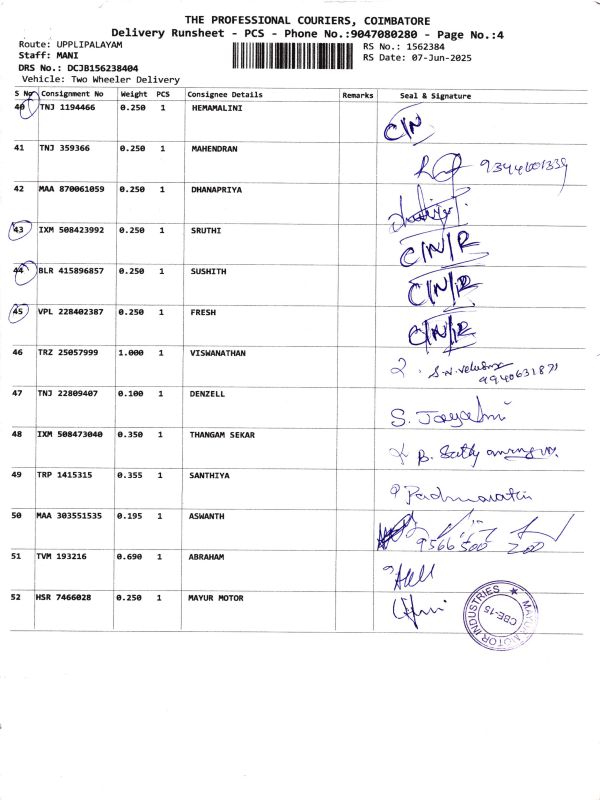 THE PROFESSIONAL COURIERS, COIMBATORE
Delivery Runsheet - PCS - Phone No.:9047080280 - Page No.:4
Route: UPPLIPALAYAM
RS No.: 1562384
Staff: MANI
RS Date: 07-Jun-2025
DRS No.: DCJB156238404
Vehicle: Two Wheeler Delivery
S No Consignment No Weight PCS Consignee Details Remarks Seal & Signature
40 TNJ 1194466 0.250 1 HEMAMALINI C/N
41 TNJ 359366 0.250 1 MAHENDRAN
42 MAA 870061059 0.250 1 DHANAPRIYA
43 IXM 508423992 0.250 1 SRUTHI C/N/R
44 BLR 415896857 0.250 1 SUSHITH C/N/R
45 VPL 228402387 0.250 1 FRESH C/N/R
46 TRZ 25057999 1.000 1 VISWANATHAN
47 TNJ 22809407 0.100 1 DENZELL
48 IXM 508473040 0.350 1 THANGAM SEKAR
49 TRP 1415315 0.355 1 SANTHIYA
50 MAA 303551535 0.195 1 ASWANTH
51 TVM 193216 0.690 1 ABRAHAM
52 HSR 7466028 0.250 1 MAYUR MOTOR
MAYUR MOTOR INDUSTRIES
CBE-15